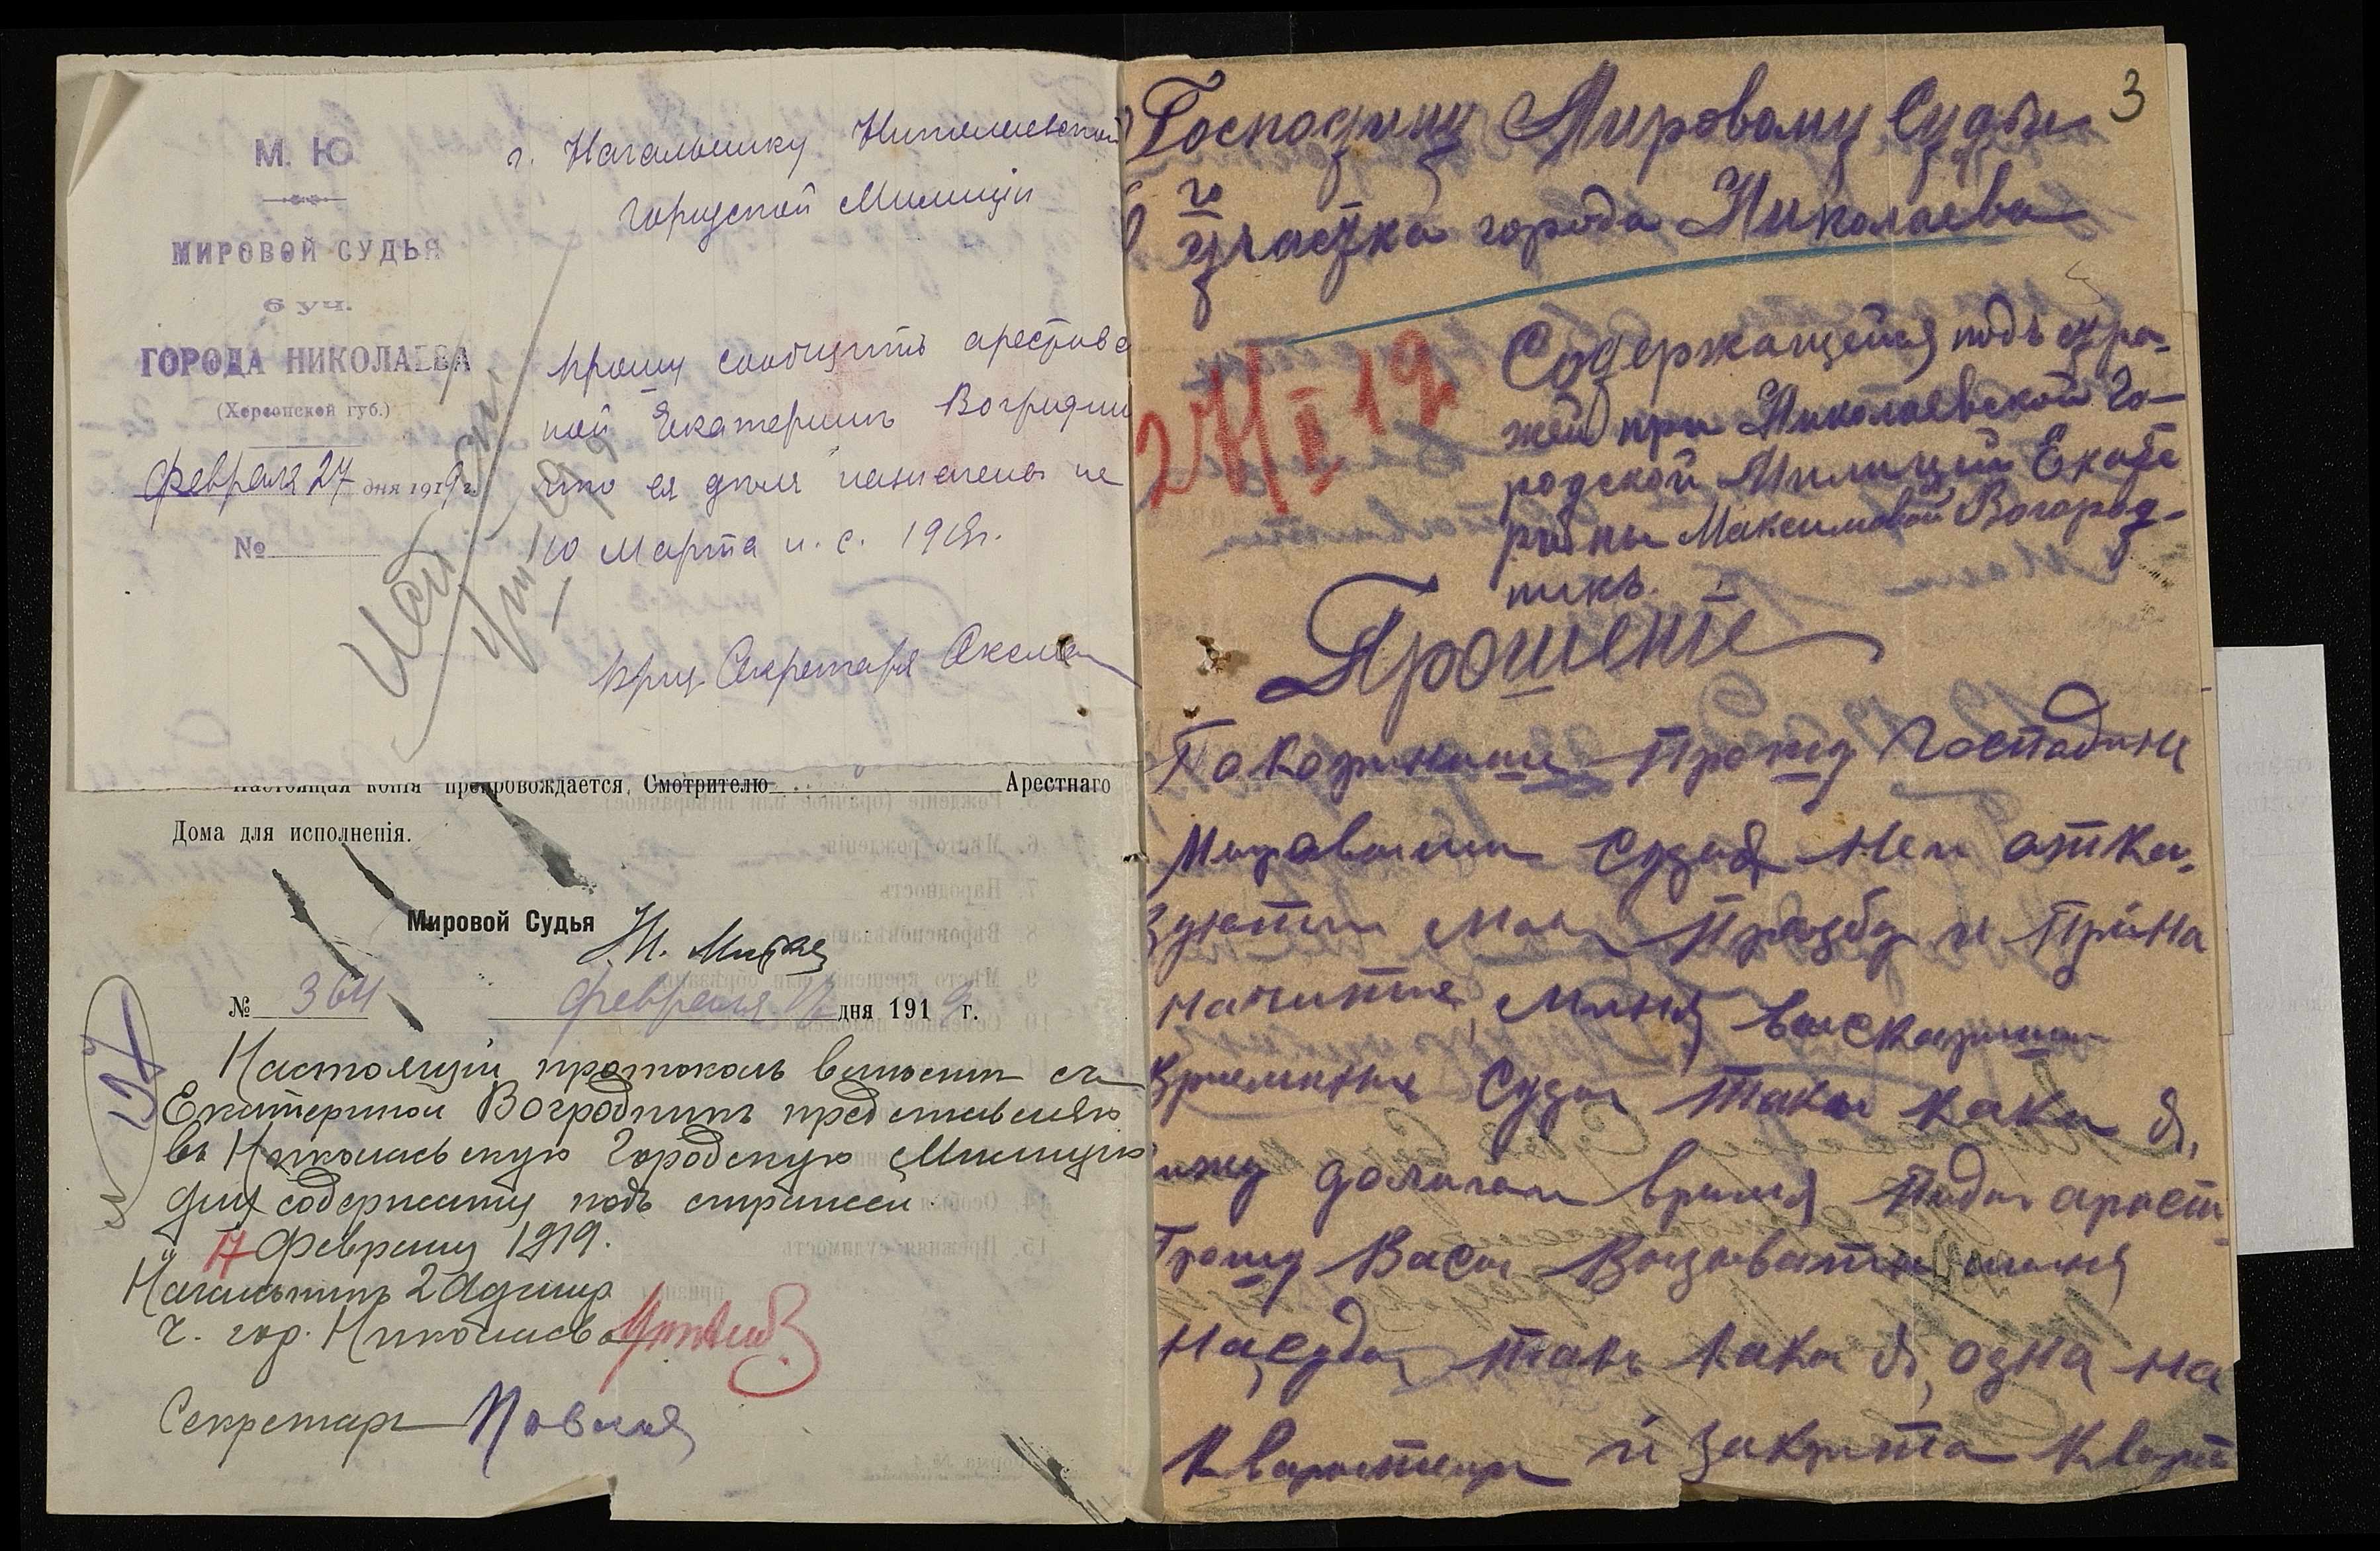 М. Ю.
МИРОВОЙ СУДЬЯ
6 уч.
ГОРОДА НИКОЛАЕВА
(Херсонской губ.)
Февраля 27 дня 1919 г.
№
г. Начальнику Николаевской
Городской Милиціи
Прошу сообщить арестова
ной Екатеринѣ
что ея дѣло назначено на
10 Марта н. с. 1919 г.
Секретаря
Настоящая копія препровождается, Смотрителю Арестнаго
Дома для исполненія.
Мировой Судья
№ 364 февраля дня 1919 г.
Настоящій протоколъ вмѣстѣ съ
Екатериной Вогродникъ представляю
въ Николаевскую Городскую Милицію
для содержанія подъ стражей.
17 Февраля 1919.
Начальникъ 2 Админ.
ч. гор. Николаева
Секретарь
3
Господину Мировому Судьи
6 го участка города Николаева
27/II 19
Содержащейся подъ стра-
жей при Николаевской Го-
родской Милиціи Екате
рины Максимовой Вогород-
никъ.
Прошеніе
Покорнише Прошу Господине
Мировыи Судя не отка
зуюти мои Прозбу и Прина
начитие миня васкарили
времини Суда така кака я,
сижу долгои время подъ арест
Прошу Васъ Визивати миня
на суда такъ кака я, одна на
квартири и закрита кварти